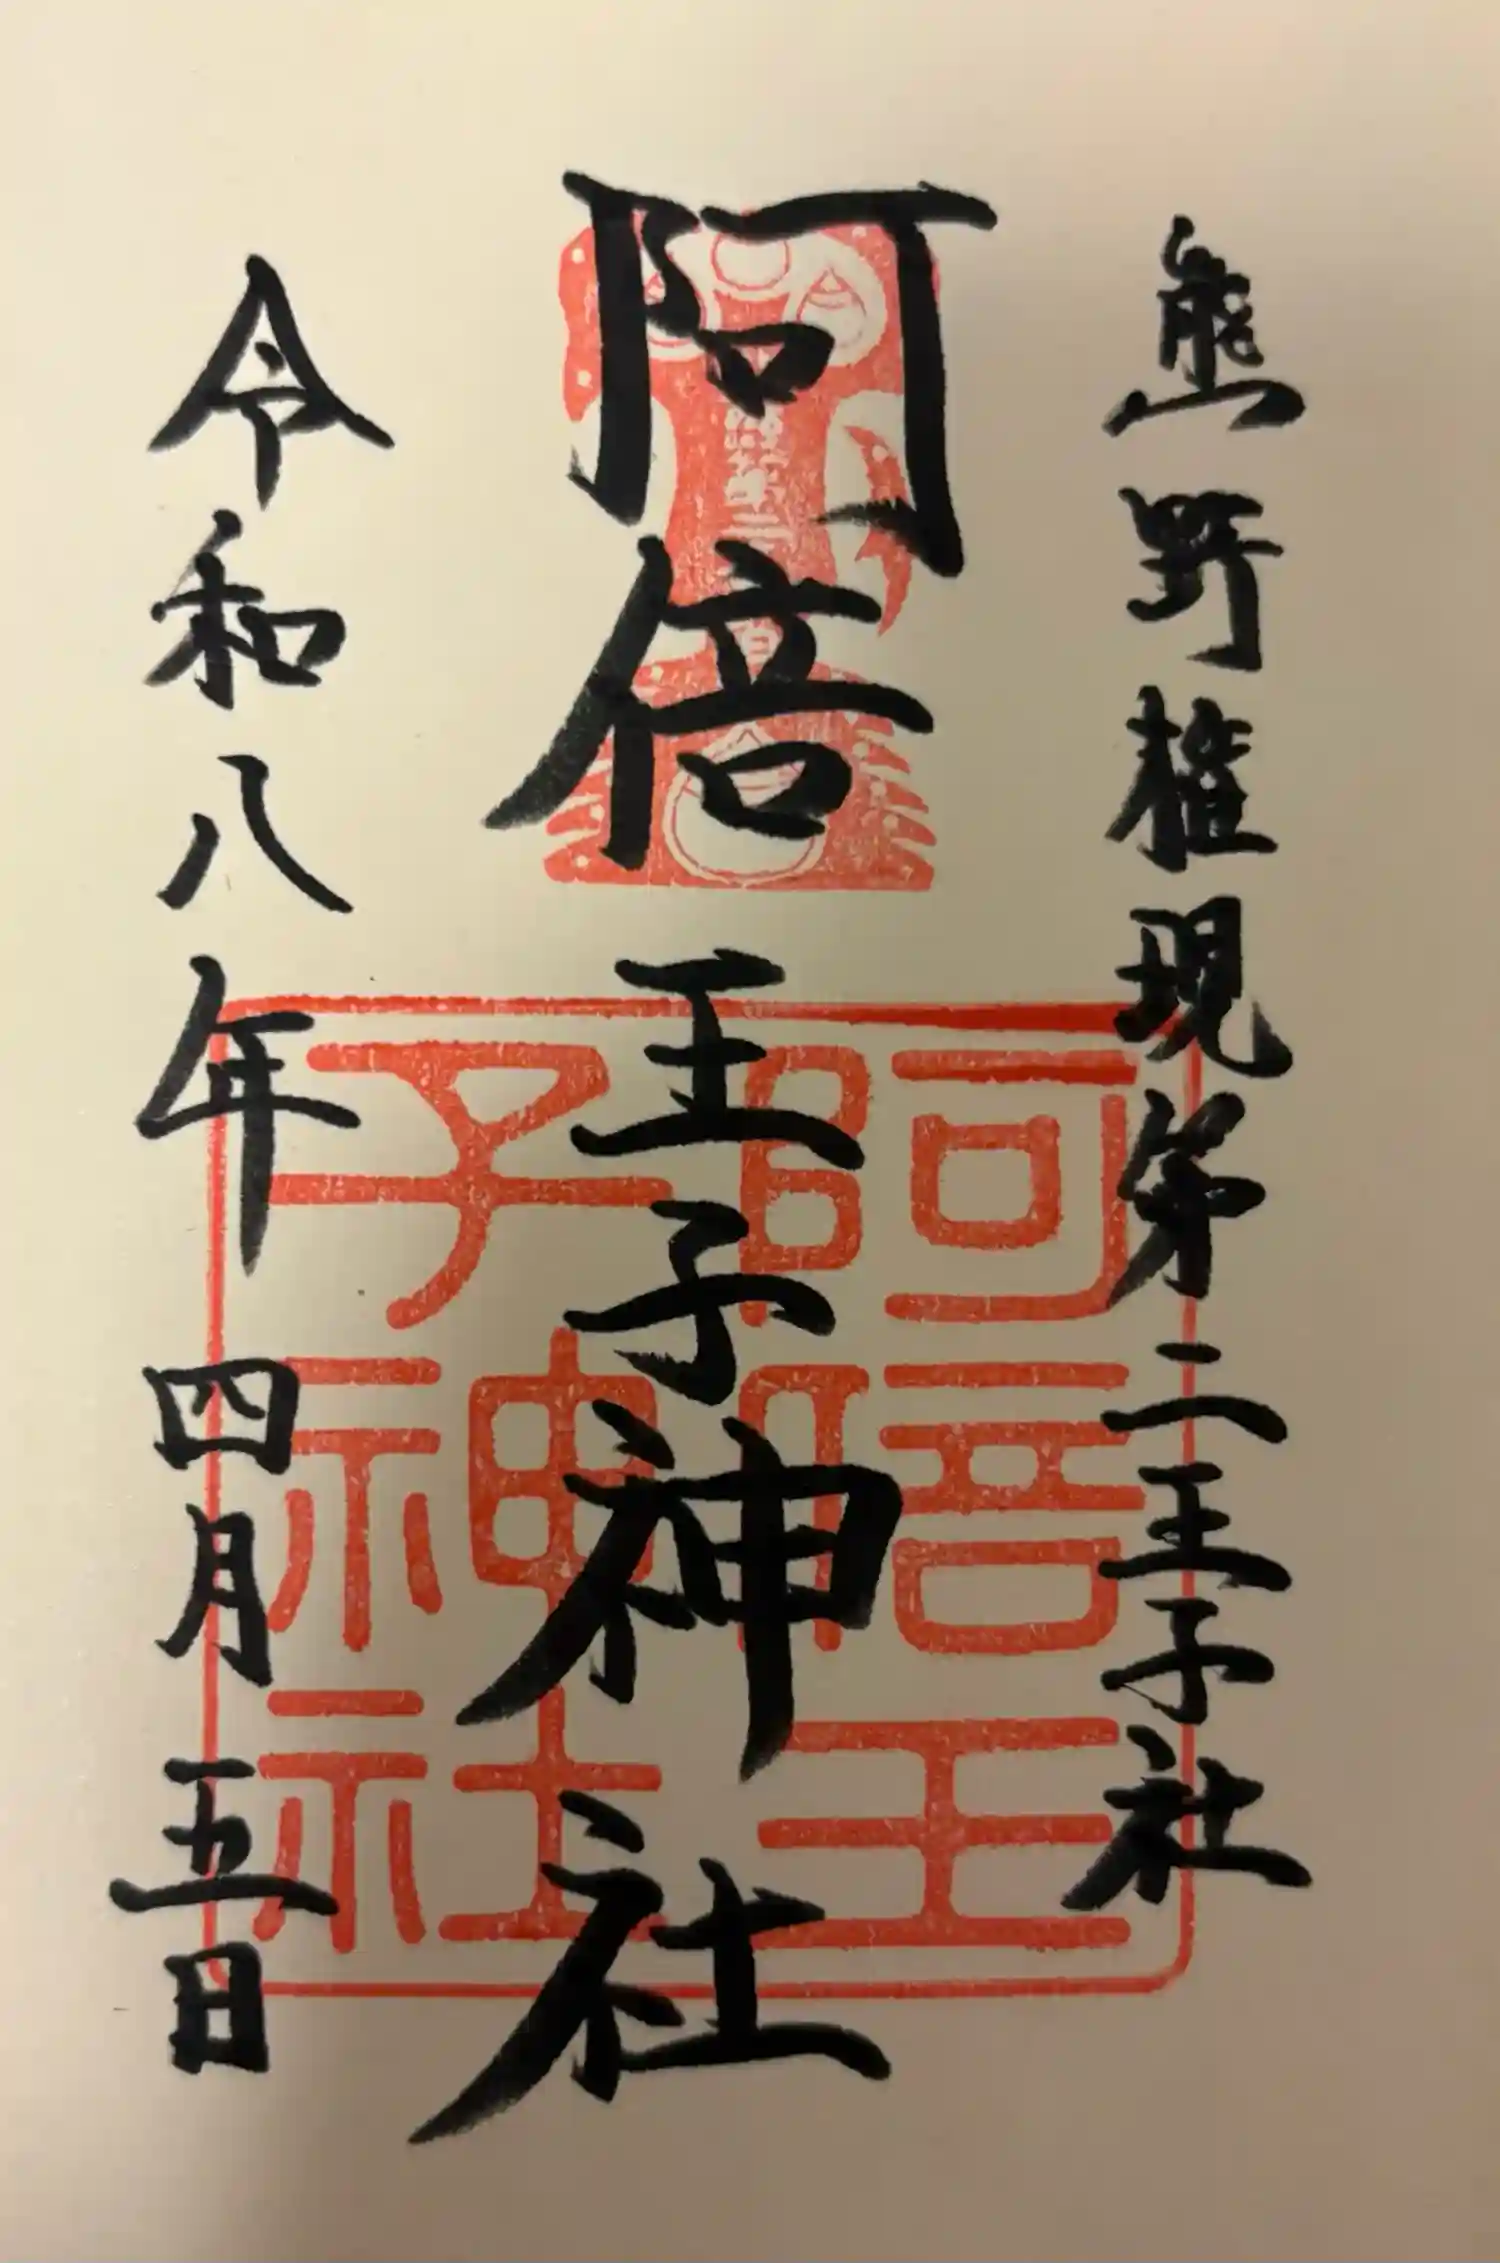 熊野権現第二王子社
阿倍王子神社
令和八年四月五日
阿倍王
子神社